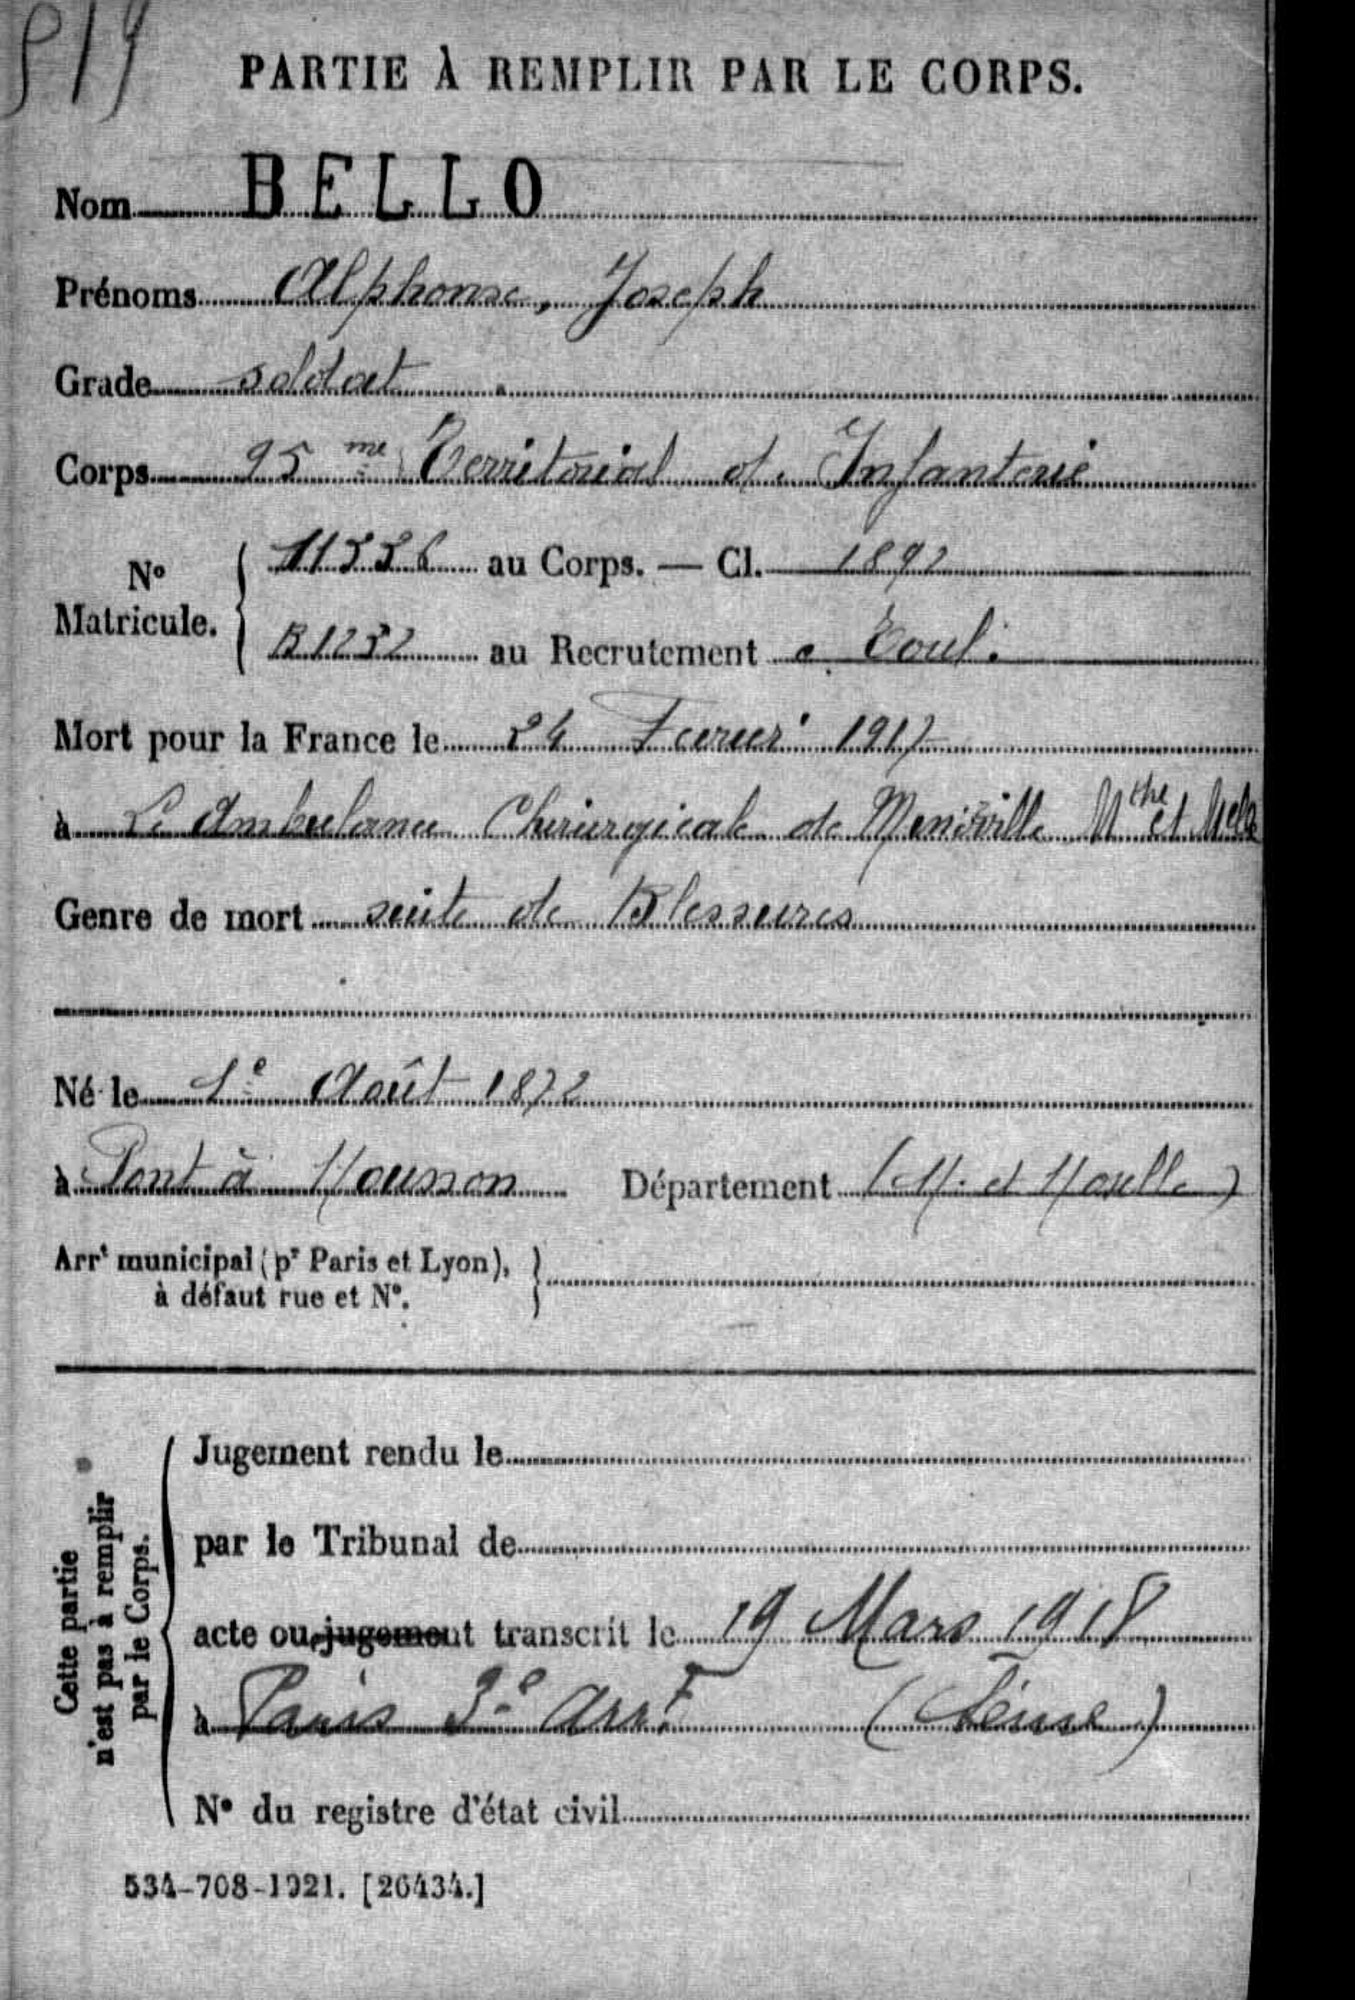 PARTIE À REMPLIR PAR LE CORPS.
Nom BELLO
Prénoms Alphonse, Joseph
Grade soldat
Corps 95me Territorial d. Infanterie
No Matricule. 11556 au Corps. — Cl. 1892
B1232 au Recrutement Toul.
Mort pour la France le 24 Fevrier 1917
à L'Ambulance Chirurgicale de Menilville Mthe et Melle
Genre de mort suite de Blessures
Né le 1e Août 1872
à Pont à Mousson Département (M. et Moselle)
Arrt municipal (pr Paris et Lyon),
à défaut rue et No.
Cette partie
n'est pas à remplir
par le Corps.
Jugement rendu le
par le Tribunal de
acte ou jugement transcrit le 19 Mars 1918
à Paris 3e Arrt (Seine)
No du registre d'état civil
534-708-1921. [26434.]